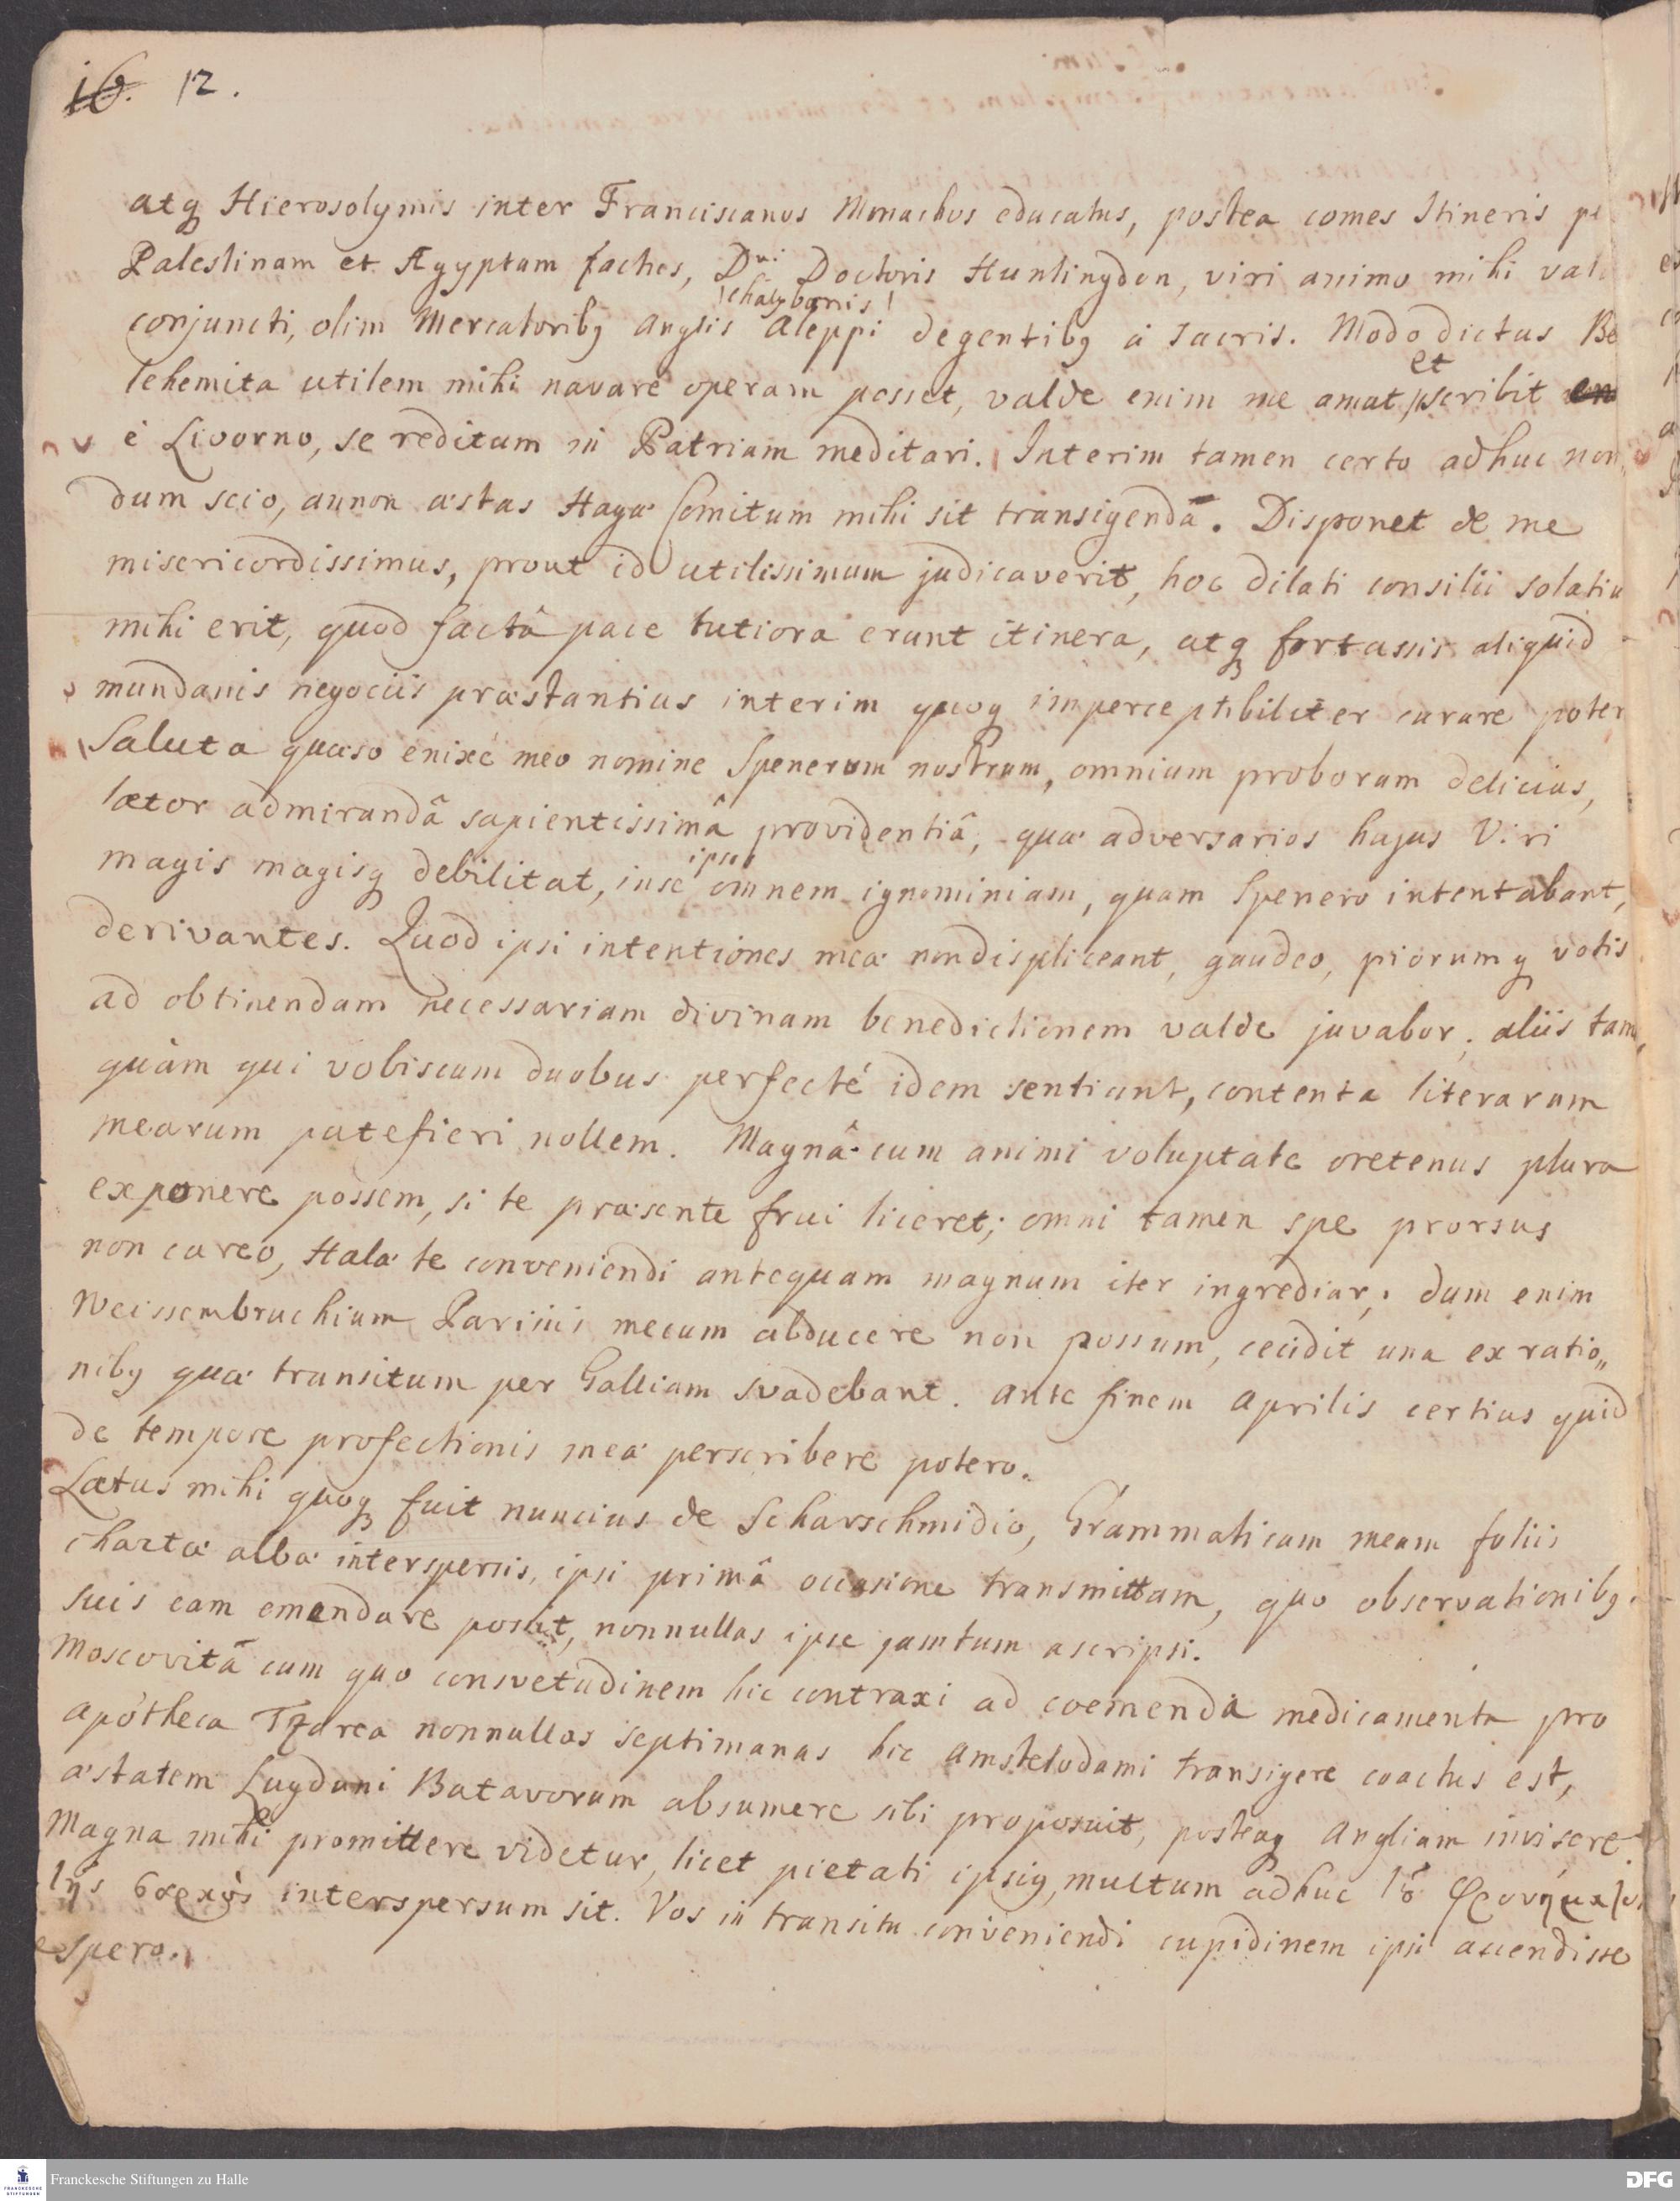 16. 12.
atq Hierosolymis inter Franciscanos Monachos educatus, postea comes Itineris pe
Palestinam et Ægyptum factus, Dni Doctoris Huntingdon, viri animo mihi valde
chalybonis
conjuncti, olim Mercatoribq Anglis Aleppi degentibq à sacris. Modo dictus Be
et
lehemita utilem mihi navare operam posset, valde enim me amat scribit en
è Livorno, se reditum in Patriam meditari. Interim tamen certo adhuc non
dum scio, annon æstas Hagæ Comitum mihi sit transigenda. Disponet de me
misericordissimus, prout id utilissimum judicaverit, hoc dilati consilii solatiu
mihi erit, quod factâ pace tutiora erunt itinera, atq fortassis aliquid
mundanis negociis præstantius interim quoq imperceptibiliter curare poter
Saluta quæso enixè meo nomine Spenerum nostrum, omnium proborum delicias,
lætor admirandâ sapientissimâ providentiâ, quæ adversarios hujus Viri
ipsos
magis magisq debilitat, in se omnem ignominiam, quam Spenero intentabant,
derivantes. Quod ipsi intentiones meæ non displiceant, gaudeo, piorumq votis
ad obtinendam necessariam divinam benedictionem valde juvabor; aliis tam
quàm qui vobiscum duobus perfectè idem sentiunt, contenta literarum
mearum patefieri nollem. Magnâ cum animi voluptate oretenus plura
exponere possem, si te præsente frui liceret; omni tamen spe prorsus
non careo, Halæ te conveniendi antequam magnum iter ingrediar; dum enim
Weissembruchium Parisiis mecum abducere non possum, cecidit una ex ratio„
nibq quæ transitum per Galliam svadebant. Ante finem Aprilis certius quid
de tempore profectionis meæ perscribere potero.
Lætus mihi quoq fuit nuncius de Scharschmidio, Grammaticam meam foliis
chartæ albæ interspersis, ipsi primâ occasione transmittam, quo observationibq
suis eam emendare possit, nonnullas ipse jamtum ascripsi.
Moscovitâ cum quo consvetudinem hic contraxi ad coemenda medicamenta pro
apotheca Tzarea nonnullas septimanas hic Amstelodami transigere coactus est,
æstatem Lugduni Batavorum absumere sibi proposuit, posteaq Angliam invisere.
Magna mihi promittere videtur, licet pietati ipsiq, multum adhuc τȣ̃ φρονήματος
τῆς σαρκὸς interspersum sit. Vos in transitu conveniendi cupidinem ipsi accendisse
spero.
Franckesche Stiftungen zu Halle
FRANCKESCHE STIFTUNGEN
DFG